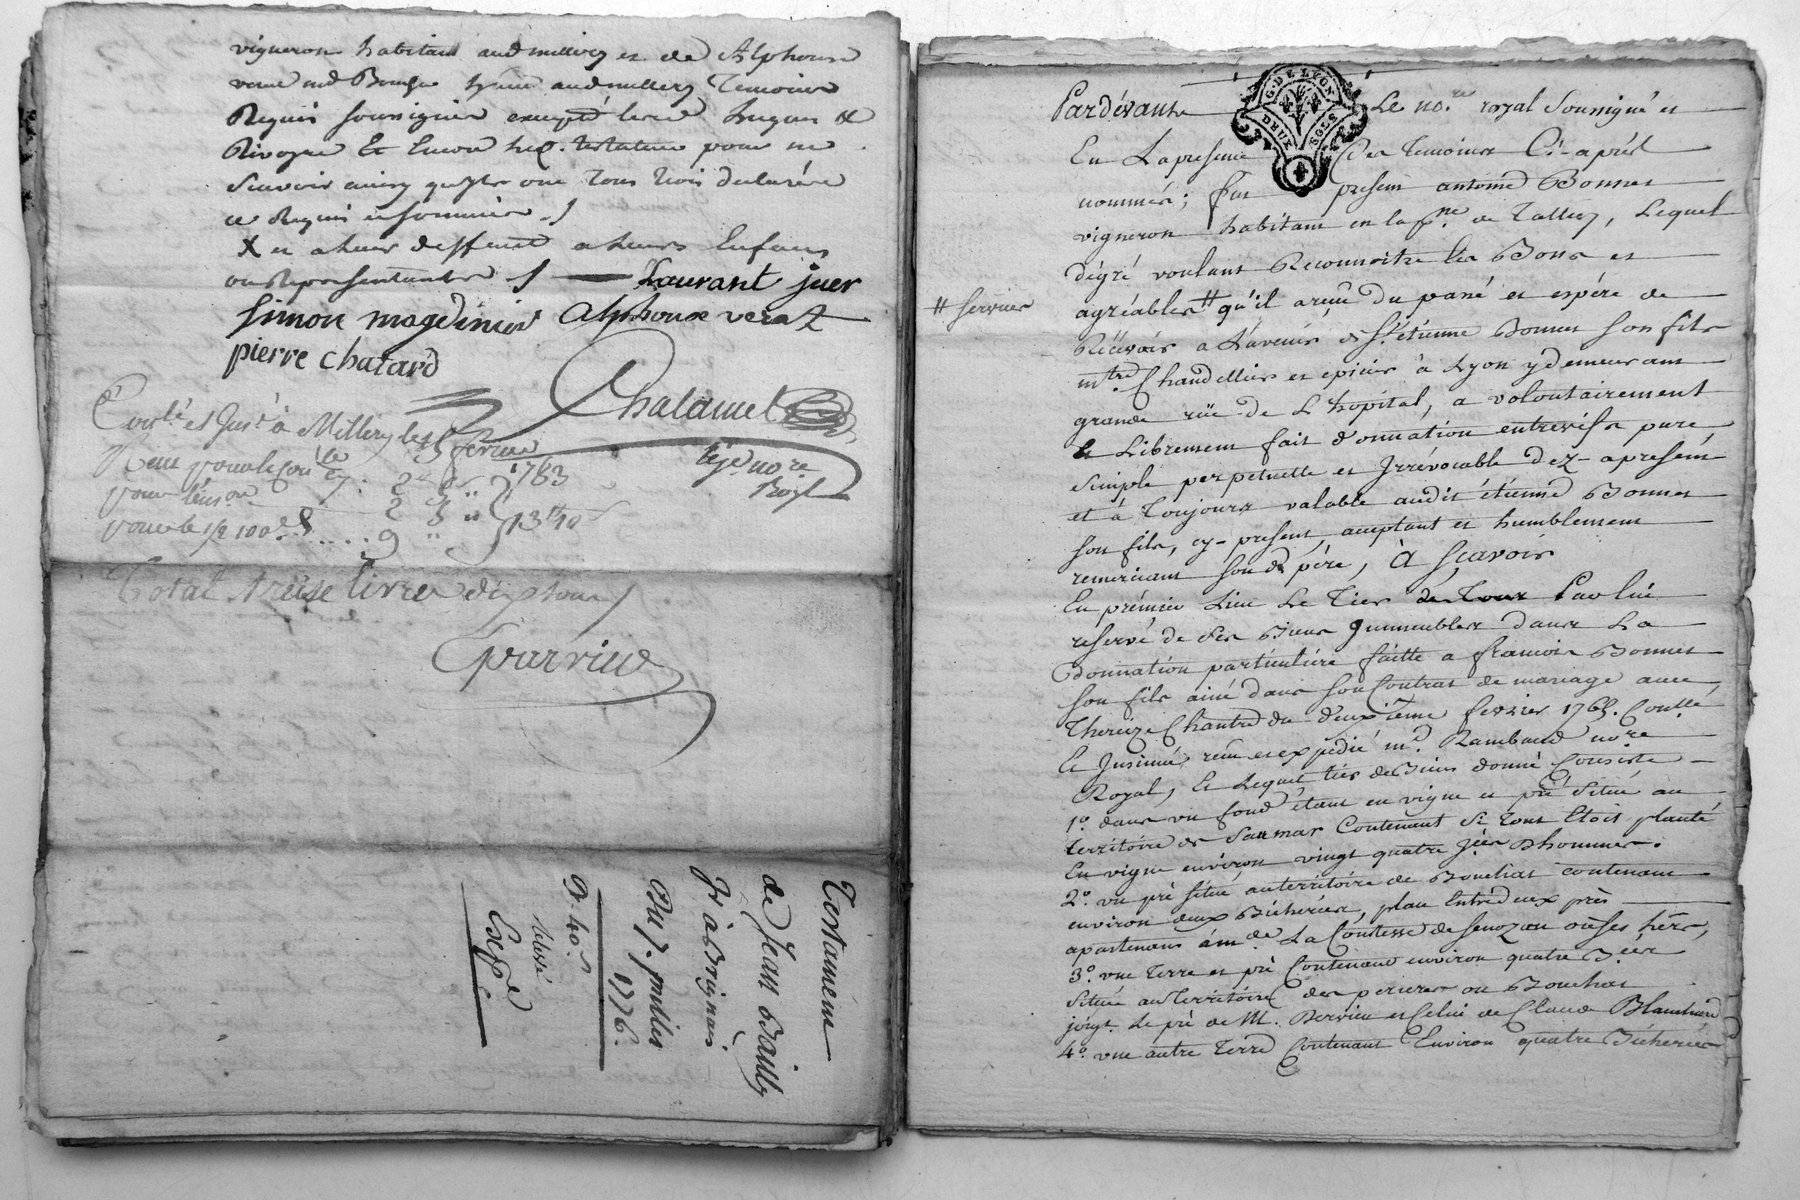 vigneron habitant aud millery et de Alphonse
requis soussignés excepté
Rivoyre Et Encore testateur pour ne
Scavoir ainsy qu'ils ont tous trois declarés
ce Requis et sommés ./
X et a leur deffaut a leurs Enfans
ou Representants ./ Laurant juer
Simon magdinier Alphonse veraz
pierre chatard
Chalamel
Controlé et Insé à Millery le fevrier
1783
nore
Royl
pour le 1/2 100e 8 ..... 9
Total treise livres dix sous /
Testament
de Jean Bailly
Du 7. juillet
1776.
Par dévant Le nore royal Soussigné et
G. DE LYON
DEUX SOLS
En La presence Des Temoins Ci-aprés
nommés; fut present antoine Bonnet
vigneron habitant en la psse de Talluy, Lequel
dégré voulant Reconnoitre les Bons et
agréables # qu'il a reçu du passé et espére de
# services
Recevoir a L'avenir de Sr étienne Bonnet son fils
mtre Chandellier et epicier à Lyon y demeurant
grande rüe de L'hopital, a volontairement
et Librement fait donnation entrevifs pure,
simple perpetuelle et Irrévocable dez-apresent
et à Toujours valable audit étienne Bonnet
son fils, cy-present, acceptant et humblement
remerciant son d. pére, À Sçavoir
En prémier Lieu Le Tiers de Tous Par lui
reservé de ses Biens Immeubles dans La
donnation particuliére faitte a francois Bonnet
son fils ainé dans son Contrat de mariage avec
Thereze Chantre du deuxième fevrier 1765. Contlé
et Insinué, reçu et expédié me. Rambaud nore
Royal, Et Lequel tiers de Biens donné Consiste
1o. dans un fond étant en vigne et pré Situé au
territoire de Contenant Si tout Etoit planté
En vigne environ vingt quatre d'hommes.
2o. un pré situé au territoire de Bouchat contenant
environ deux Bicherées, placé Entre deux prés
apartenant à me de La Comtesse de Senozan où ses hérs,
3o. une Terre et pré Contenant environ quatre Bées
Située au Territoire des perieres ou Bouchat
joigt. Le pré de M. Dervieu et Celui de Claude Blanchard
4o. une autre Terre Contenant Environ quatre Bicherées